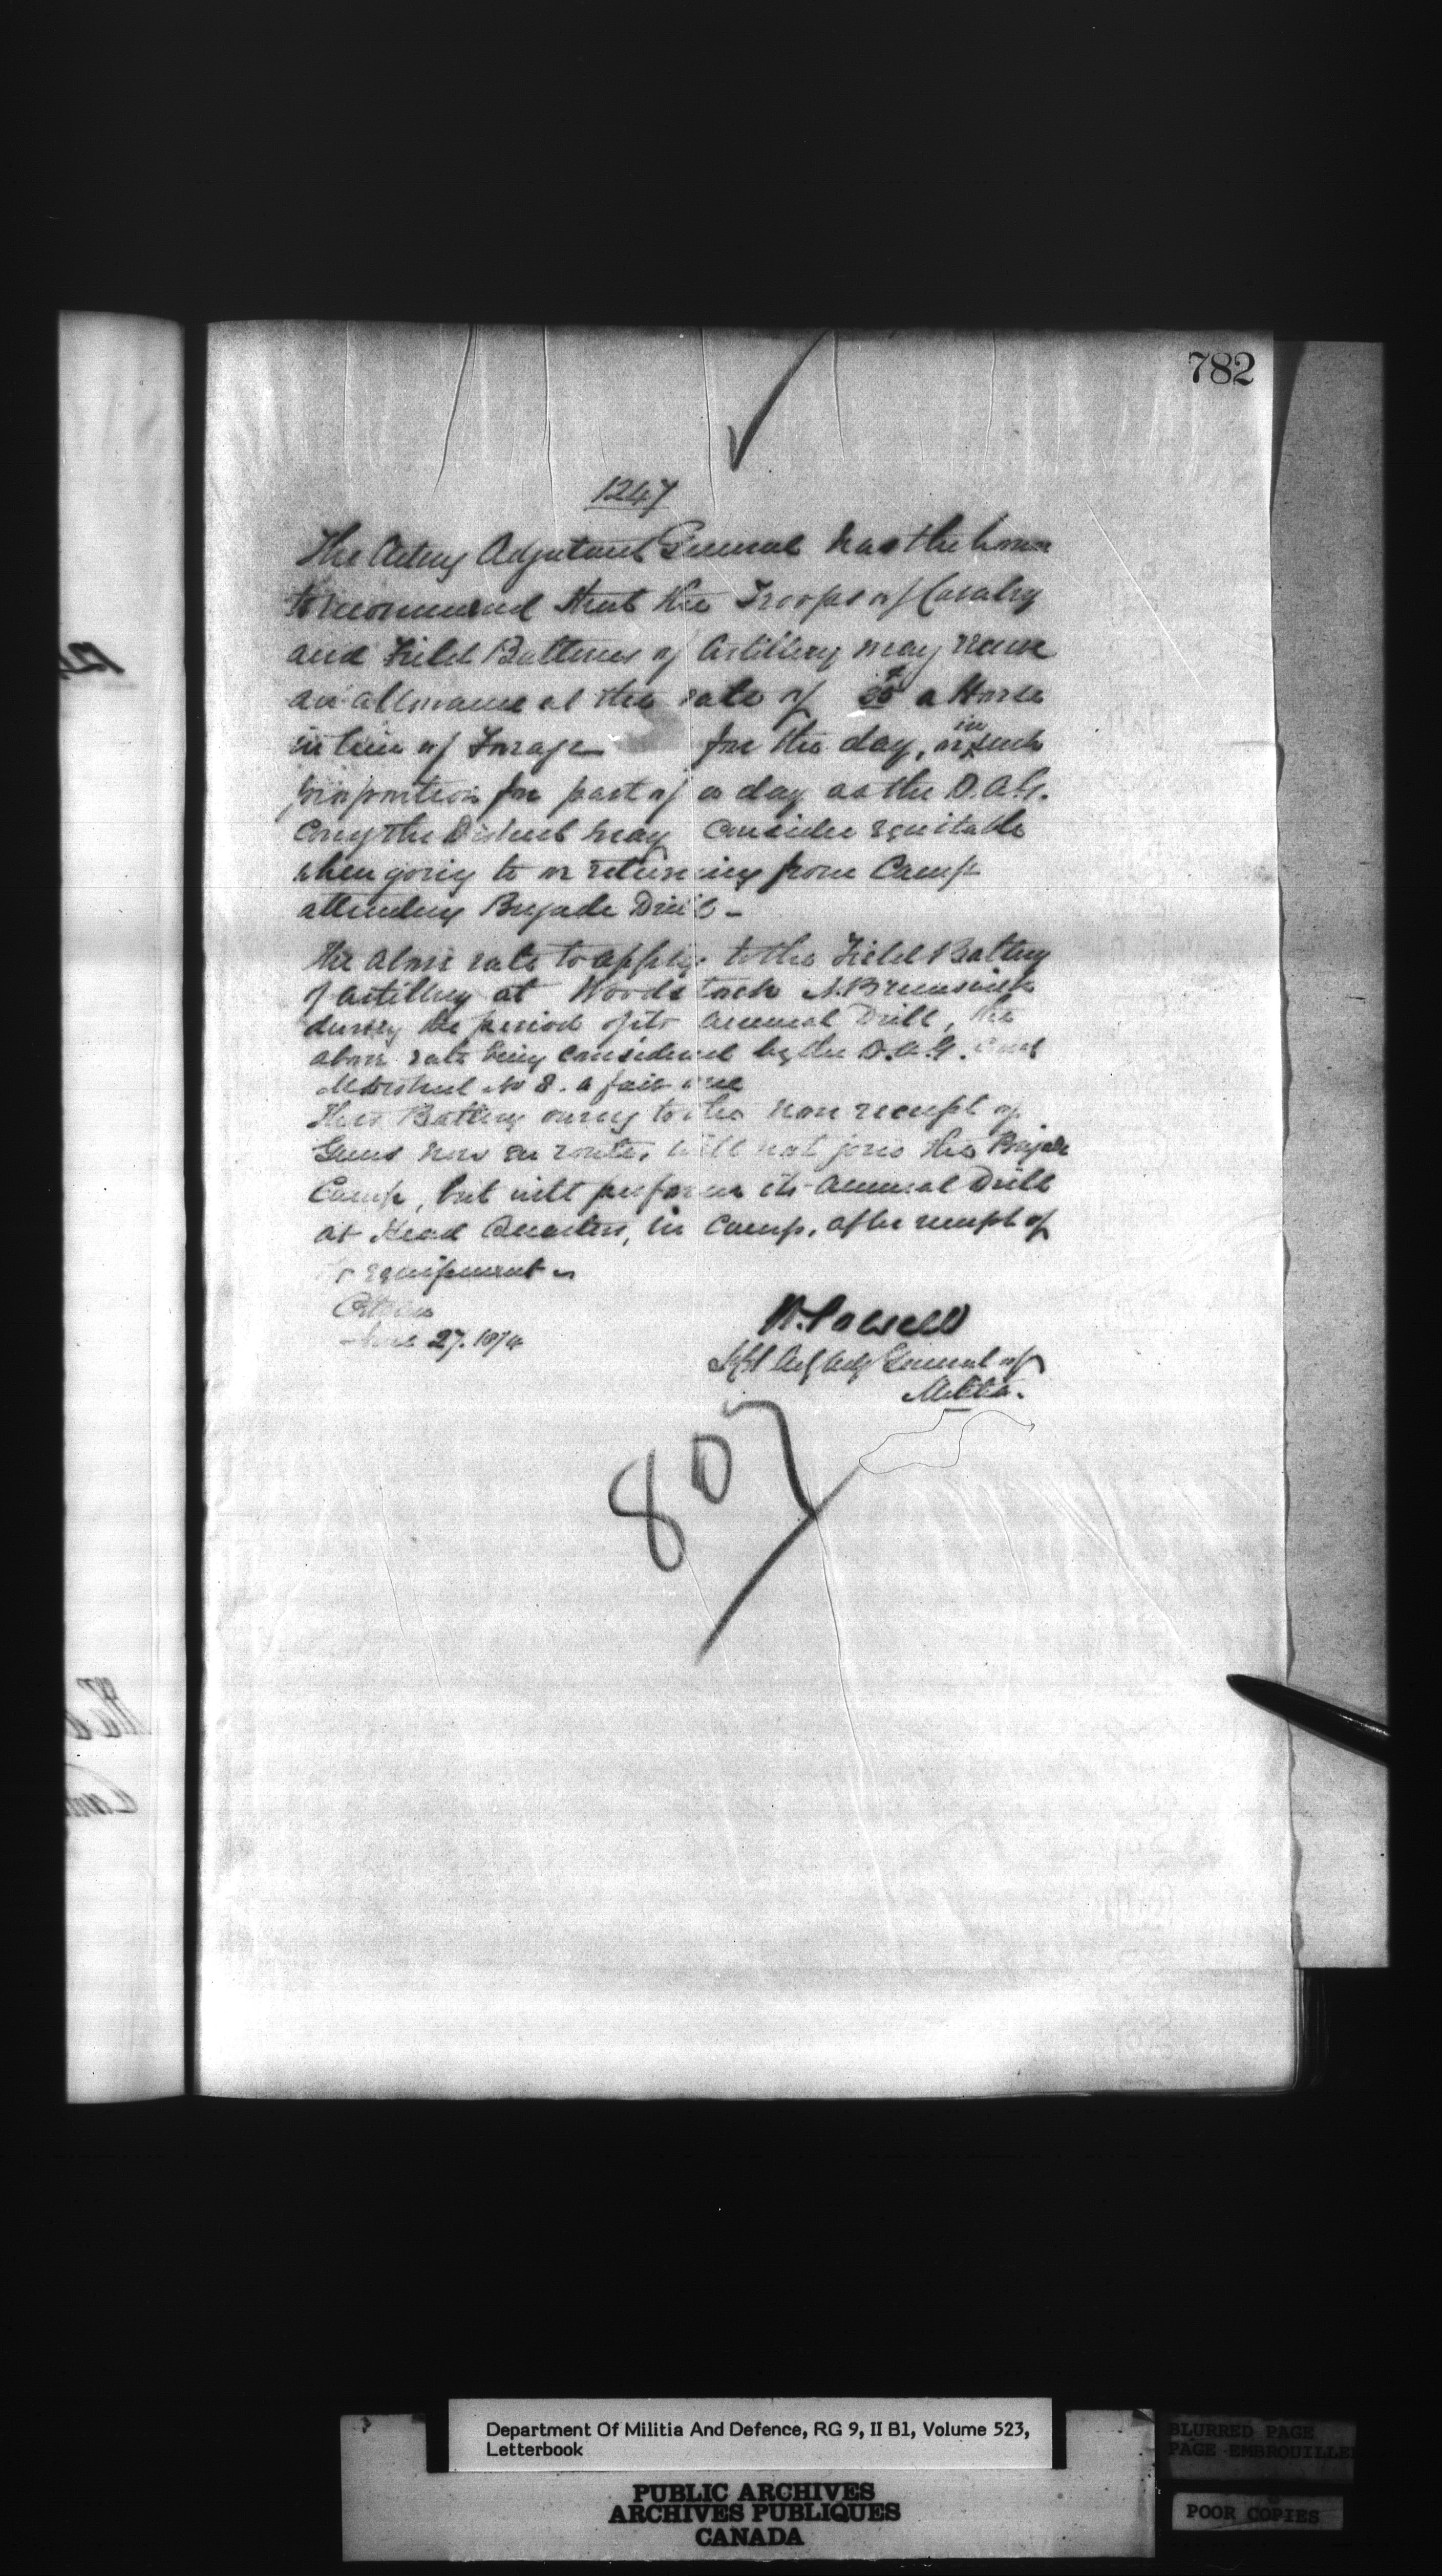 782
1247
The Acting Adjutant General has the honor
to recommend that the Troops of Cavalry
and Field Batteries of Artillery may receive
an allowance at the rate of a Horse
in lieu of Forage for the day, or in such
proportion for part of a day as the D.A.G.
Comg the District may consider equitable
when going to or returning from Camp
attending Brigade Drill -
The above rate to apply to the Field Battery
of Artillery at Woodstock N. Brunswick
during the period of its Annual Drill, the
above rate being considered by the D.A.G. Comg
M District No 8. a fair one
This Battery owing to the non receipt of
Guns now en route, will not join the Brigade
Camp, but will perform its Annual Drill
at Head Quarters, in Camp, after receipt of
equipment -
Ottawa
27. 1874
W. Powell
Actg Adjt General of
Militia.
807
Department Of Militia And Defence, RG 9, II B1, Volume 523,
Letterbook
PUBLIC ARCHIVES
ARCHIVES PUBLIQUES
CANADA
BLURRED PAGE
PAGE EMBROUILLEE
POOR COPIES